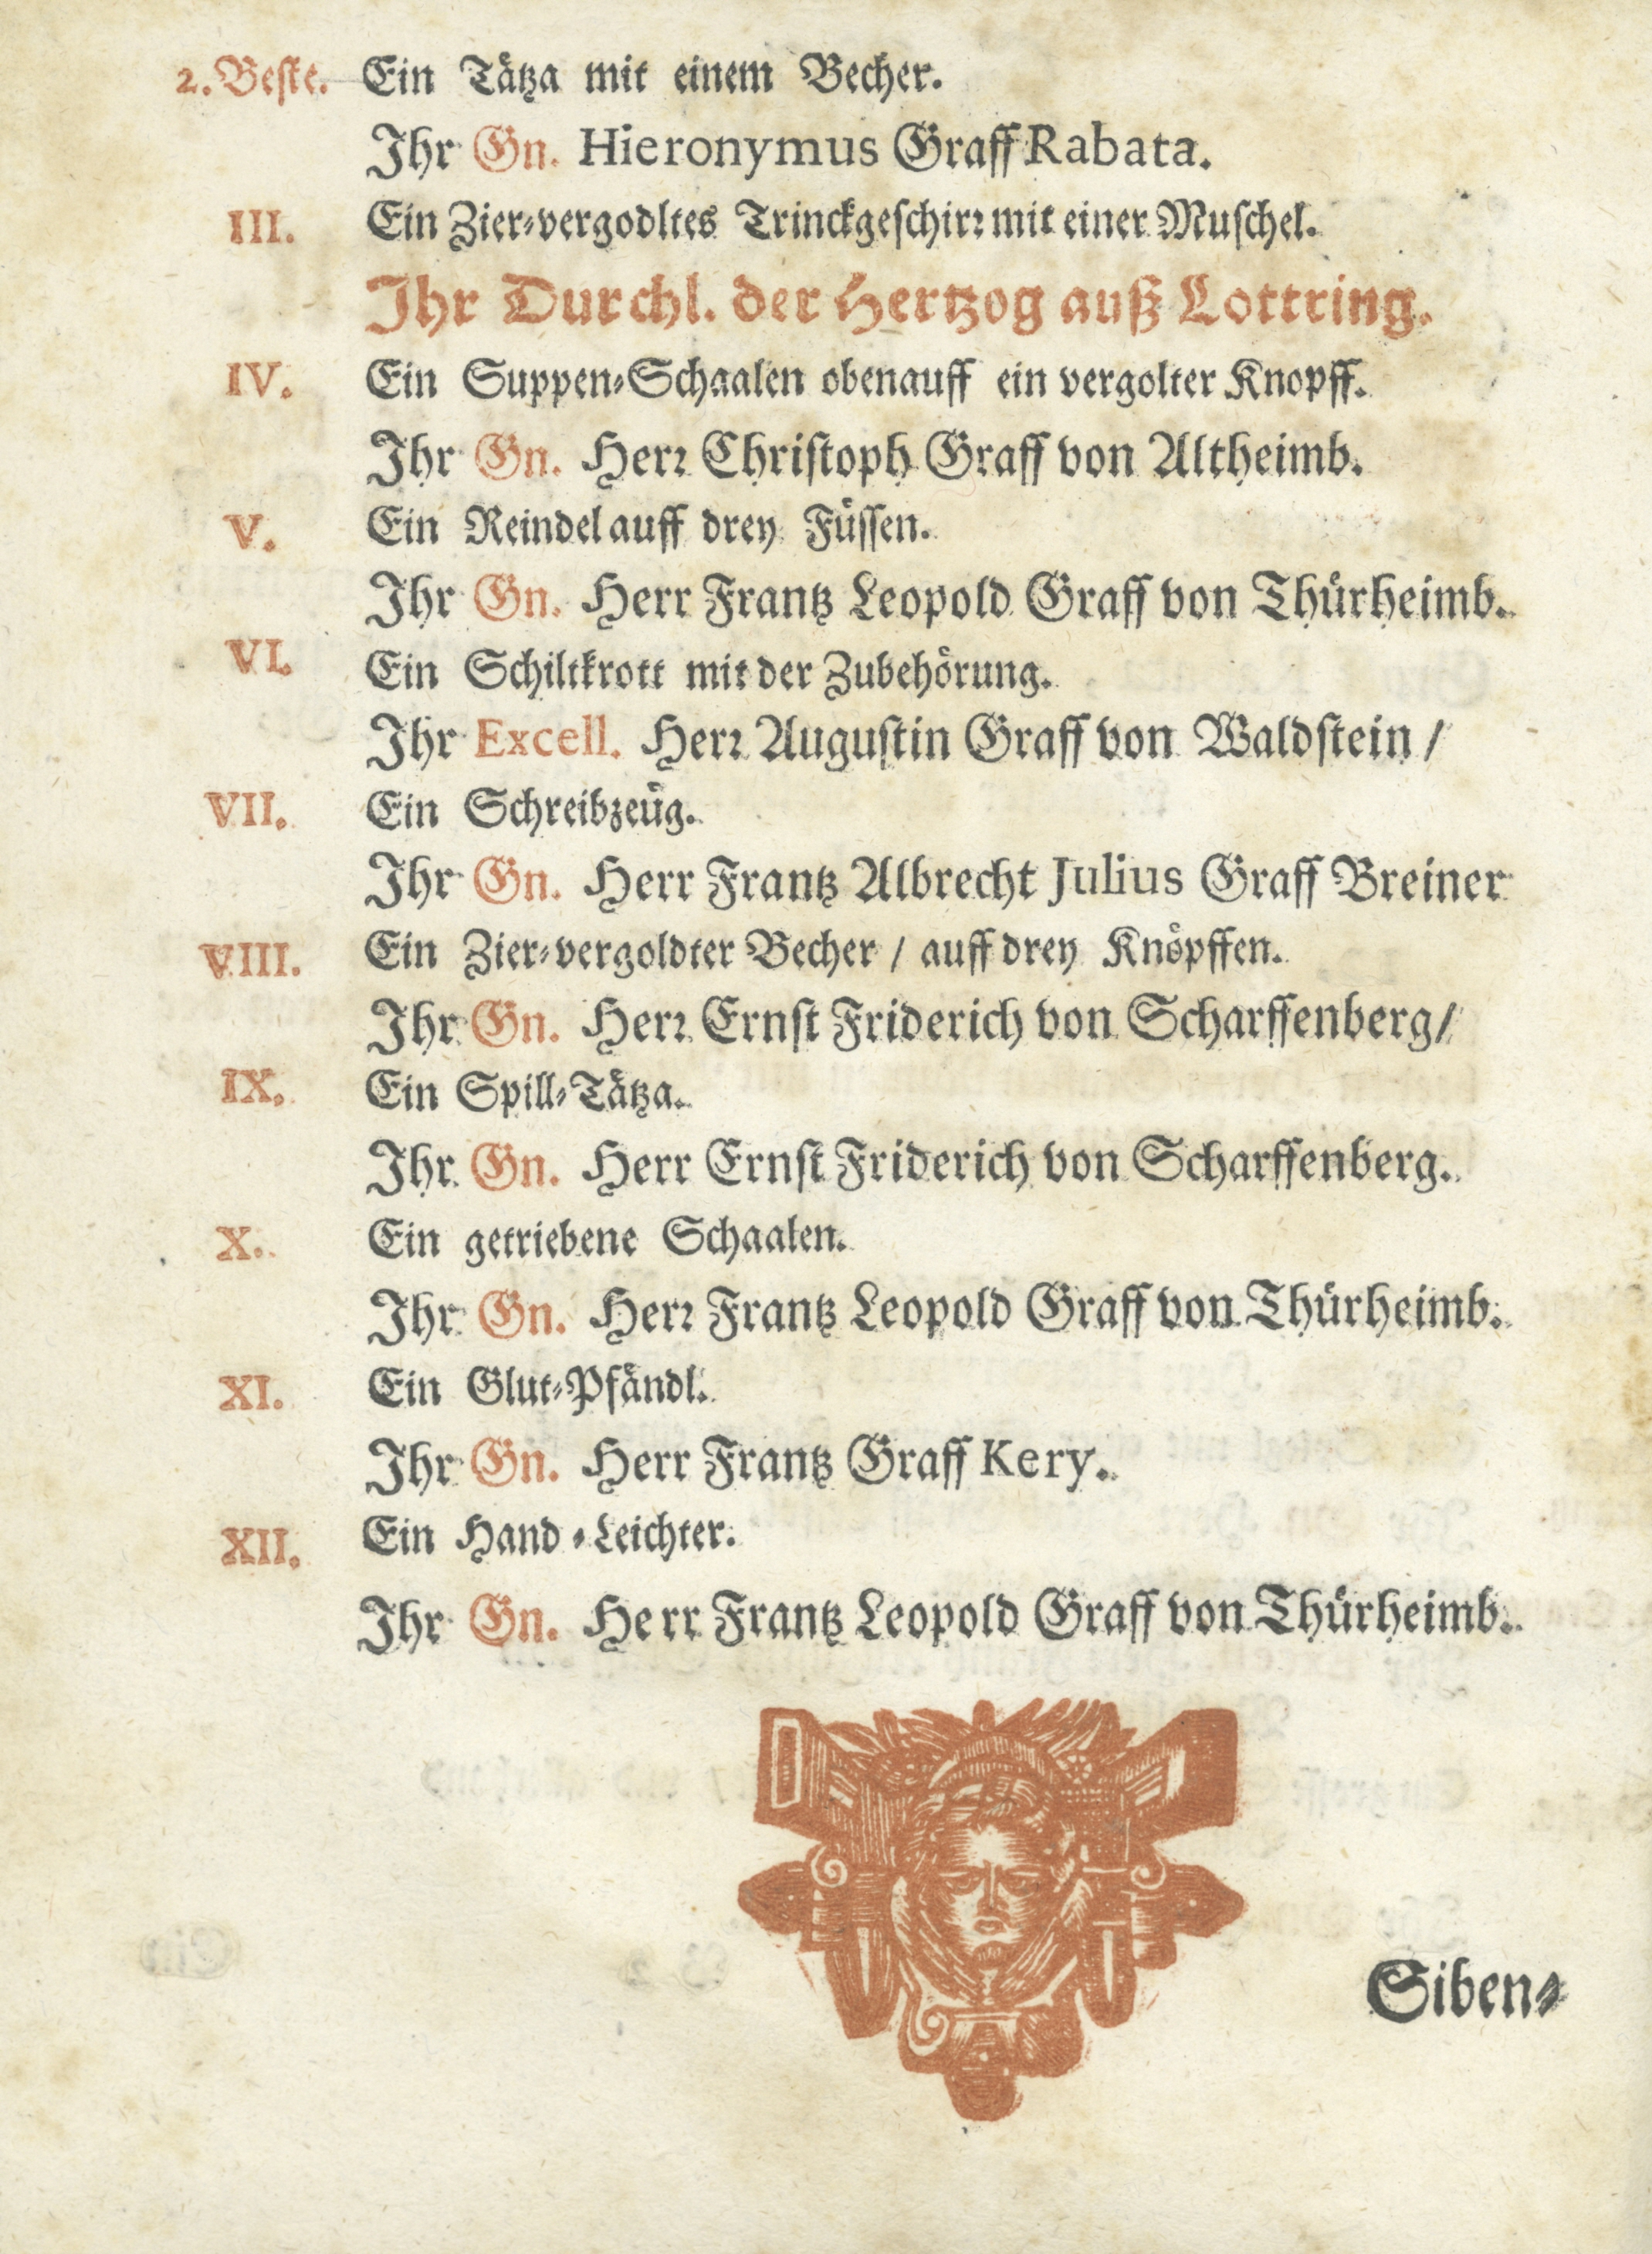 2. Beste. Ein Tätza mit einem Becher.
Ihr Gn. Hieronymus Graff Rabata.
III. Ein Zier-vergodltes Trinckgeschirr mit einer Muschel.
Ihr Durchl. der Hertzog auß Lottring.
IV. Ein Suppen-Schaalen obenauff ein vergolter Knopff.
Ihr Gn. Herr Christoph Graff von Altheimb.
V. Ein Reindel auff drey Füssen.
Ihr Gn. Herr Frantz Leopold Graff von Thürheimb.
VI. Ein Schiltkrott mit der Zubehörung.
Ihr Excell. Herr Augustin Graff von Waldstein /
VII. Ein Schreibzeüg.
Ihr Gn. Herr Frantz Albrecht Julius Graff Breiner
VIII. Ein Zier-vergoldter Becher / auff drey Knöpffen.
Ihr Gn. Herr Ernst Friderich von Scharffenberg /
IX. Ein Spill-Tätza.
Ihr Gn. Herr Ernst Friderich von Scharffenberg.
X. Ein getriebene Schaalen.
Ihr Gn. Herr Frantz Leopold Graff von Thürheimb.
XI. Ein Glut-Pfändl.
Ihr Gn. Herr Frantz Graff Kery.
XII. Ein Hand-Leichter.
Ihr Gn. Herr Frantz Leopold Graff von Thürheimb.
Siben-